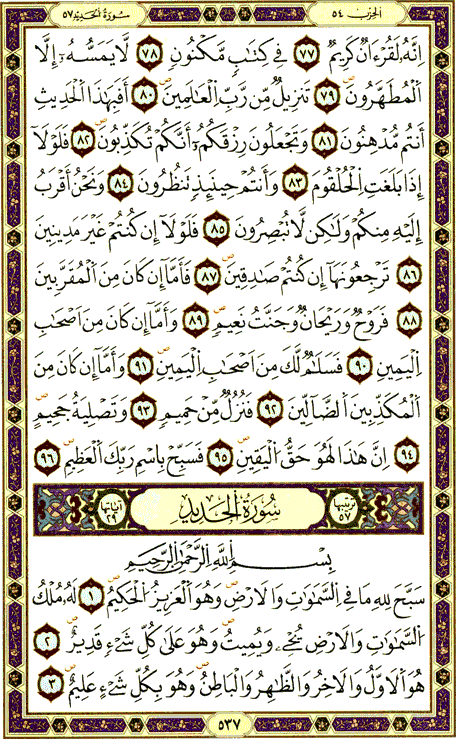 سُورَةُ الحَدِيدِ ٥٧ الحِزْبُ ٥٤
إِنَّهُۥ لَقُرْءَانٌ كَرِيمٌ ٧٧ فِي كِتَٰبٍ مَّكْنُونٍ ٧٨ لَّا يَمَسُّهُۥٓ إِلَّا
اَلْمُطَهَّرُونَ ٧٩ تَنزِيلٌ مِّن رَّبِّ اِلْعَٰلَمِينَ ٨٠ أَفَبِهَٰذَا اَلْحَدِيثِ
أَنتُم مُّدْهِنُونَ ٨١ وَتَجْعَلُونَ رِزْقَكُمُۥٓ أَنَّكُمْ تُكَذِّبُونَ ٨٢ فَلَوْلَآ
إِذَا بَلَغَتِ اِلْحُلْقُومَ ٨٣ وَأَنتُمْ حِينَئِذٍ تَنظُرُونَ ٨٤ وَنَحْنُ أَقْرَبُ
إِلَيْهِ مِنكُمْ وَلَٰكِن لَّا تُبْصِرُونَ ٨٥ فَلَوْلَآ إِن كُنتُمْ غَيْرَ مَدِينِينَ
٨٦ تَرْجِعُونَهَآ إِن كُنتُمْ صَٰدِقِينَ ٨٧ فَأَمَّآ إِن كَانَ مِنَ اَلْمُقَرَّبِينَ
٨٨ فَرَوْحٌ وَرَيْحَانٌ وَجَنَّتُ نَعِيمٍ ٨٩ وَأَمَّآ إِن كَانَ مِنَ اَصْحَٰبِ
اِلْيَمِينِ ٩٠ فَسَلَٰمٌ لَّكَ مِنَ اَصْحَٰبِ اِلْيَمِينِ ٩١ وَأَمَّآ إِن كَانَ مِنَ
اَلْمُكَذِّبِينَ اَلضَّآلِّينَ ٩٢ فَنُزُلٌ مِّنْ حَمِيمٍ ٩٣ وَتَصْلِيَةُ جَحِيمٍ
٩٤ إِنَّ هَٰذَا لَهُوَ حَقُّ اُلْيَقِينِ ٩٥ فَسَبِّحْ بِاسْمِ رَبِّكَ اَلْعَظِيمِ ٩٦
ترتيبها ٥٧ سُورَةُ الحَدِيدِ آياتها ٢٩
بِسْمِ اِللَّهِ اِلرَّحْمَٰنِ اِلرَّحِيمِ
سَبَّحَ لِلهِ مَا فِي اِلسَّمَٰوَٰتِ وَالَارْضِ وَهُوَ اَلْعَزِيزُ اُلْحَكِيمُ ١ لَهُۥ مُلْكُ
اُلسَّمَٰوَٰتِ وَالَارْضِ يُحْيِۦ وَيُمِيتُ وَهُوَ عَلَىٰ كُلِّ شَےْءٍ قَدِيرٌ ٢
هُوَ اَلَاوَّلُ وَالَاخِرُ وَالظَّٰهِرُ وَالْبَاطِنُ وَهُوَ بِكُلِّ شَےْءٍ عَلِيمٌ ٣
٥٣٧